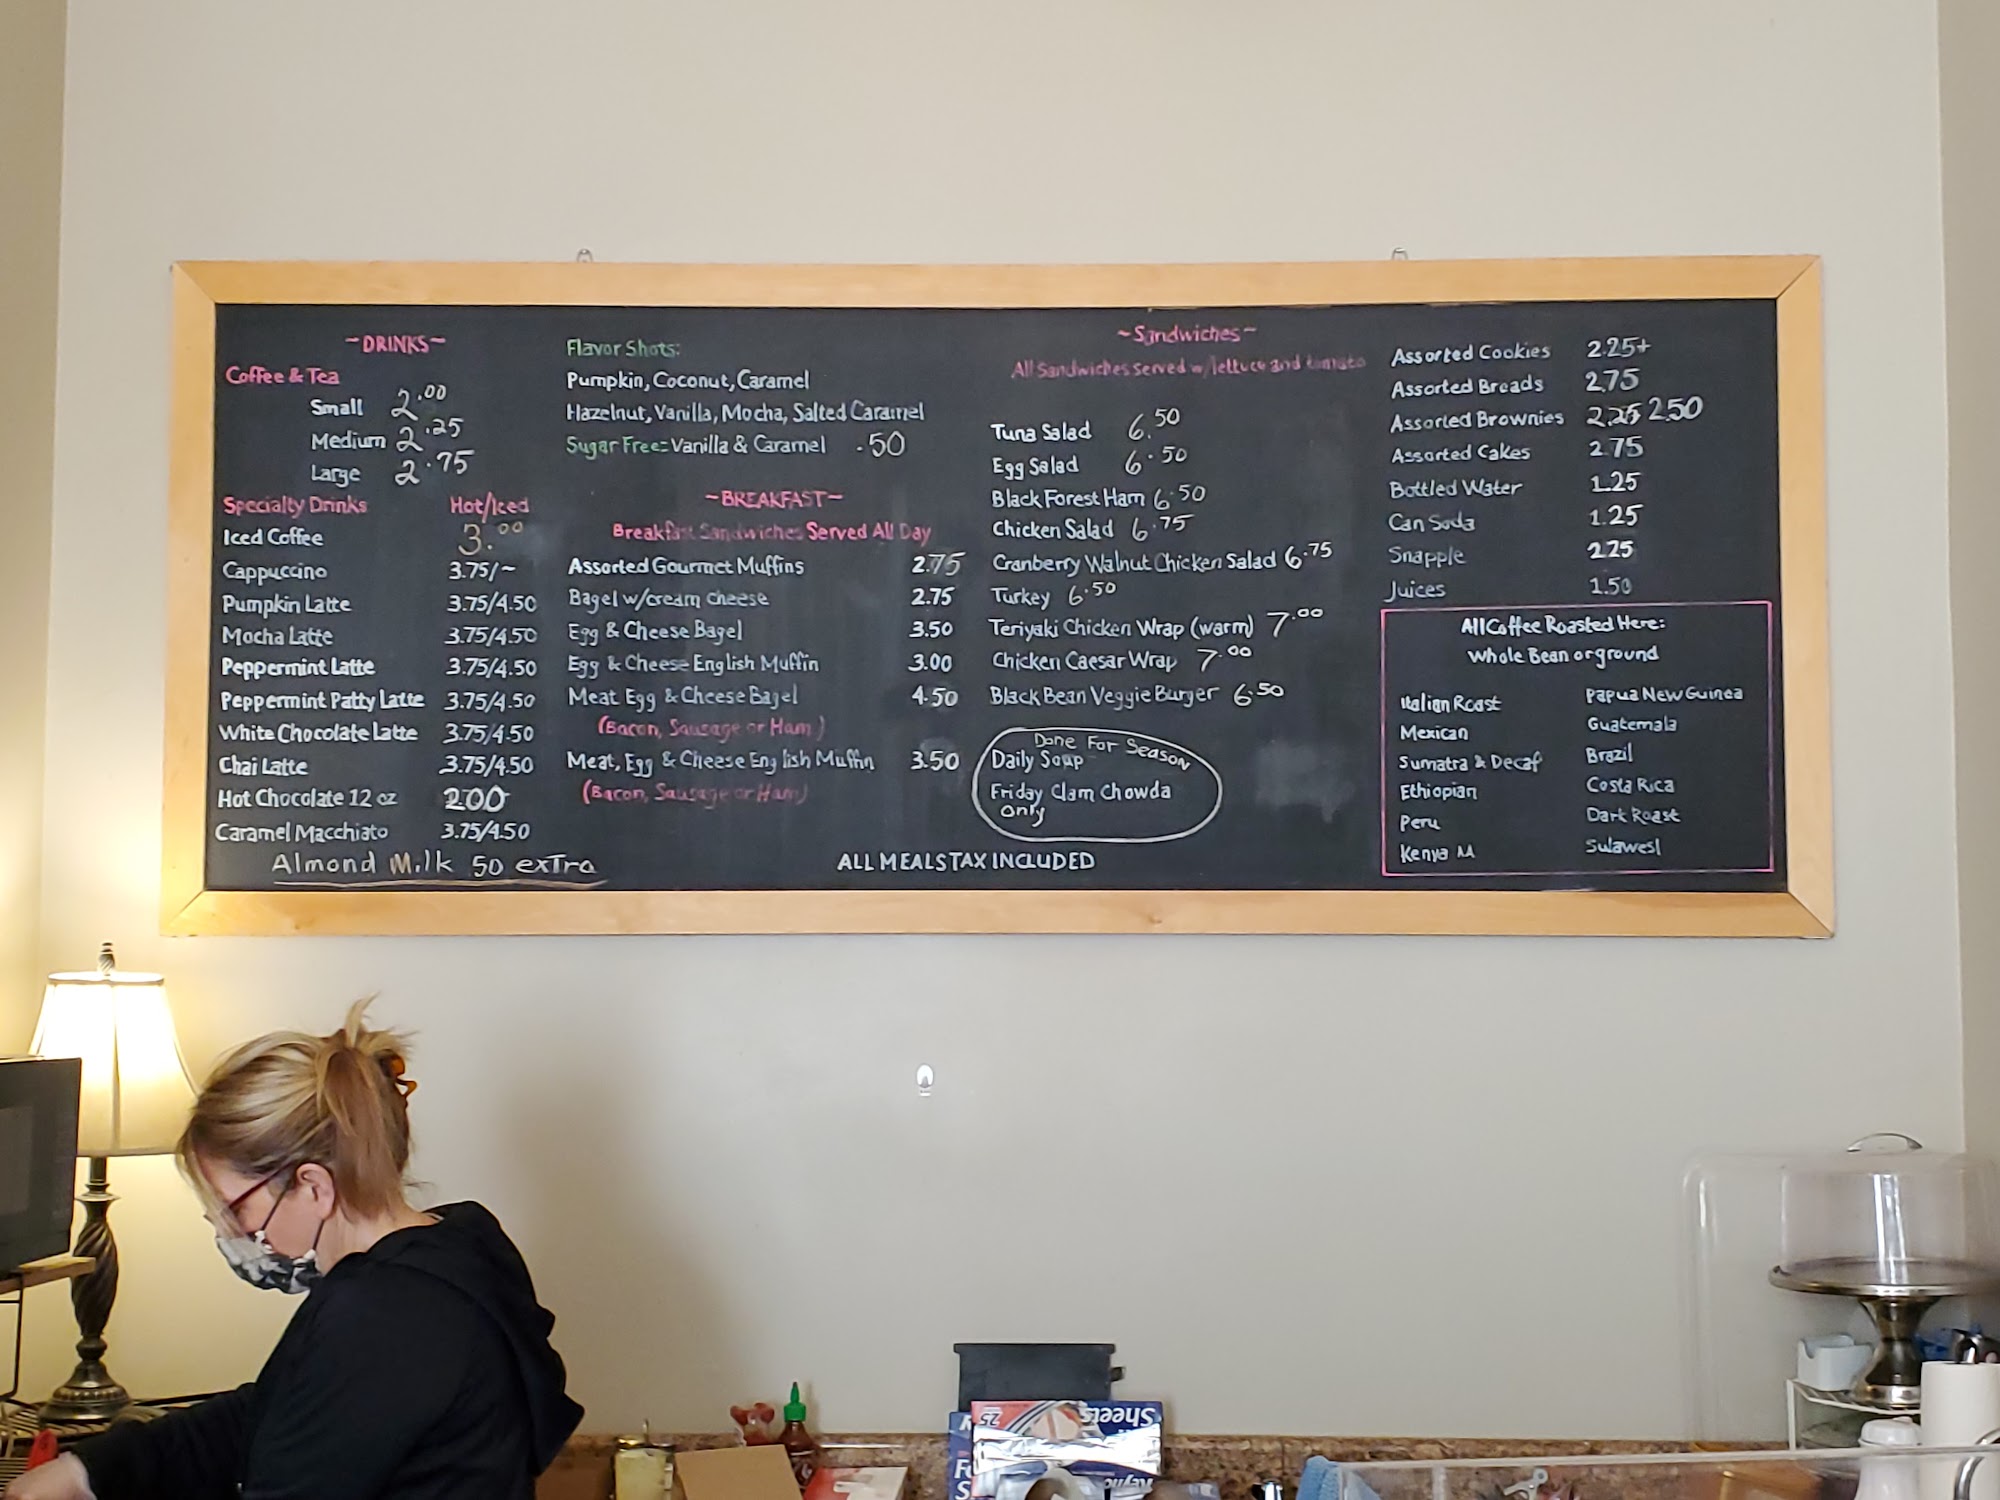 ~DRINKS~
Coffee & Tea
Small 2.00
Medium 2.25
Large 2.75
Specialty Drinks Hot/Iced
Iced Coffee 3.00
Cappuccino 3.75/~
Pumpkin Latte 3.75/4.50
Mocha Latte 3.75/4.50
Peppermint Latte 3.75/4.50
Peppermint Patty Latte 3.75/4.50
White Chocolate Latte 3.75/4.50
Chai Latte 3.75/4.50
Hot Chocolate 12 oz 2.00
Caramel Macchiato 3.75/4.50
Almond Milk 50 exTra
Flavor Shots:
Pumpkin, Coconut, Caramel
Hazelnut, Vanilla, Mocha, Salted Caramel
Sugar Free: Vanilla & Caramel .50
~BREAKFAST~
Breakfast Sandwiches Served All Day
Assorted Gourmet Muffins 2.75
Bagel w/cream cheese 2.75
Egg & Cheese Bagel 3.50
Egg & Cheese English Muffin 3.00
Meat Egg & Cheese Bagel 4.50
(Bacon, Sausage or Ham)
Meat, Egg & Cheese English Muffin 3.50
(Bacon, Sausage or Ham)
ALL MEALS TAX INCLUDED
~Sandwiches~
All Sandwiches served w/lettuce and tomato
Tuna Salad 6.50
Egg Salad 6.50
Black Forest Ham 6.50
Chicken Salad 6.75
Cranberry Walnut Chicken Salad 6.75
Turkey 6.50
Teriyaki Chicken Wrap (warm) 7.00
Chicken Caesar Wrap 7.00
Black Bean Veggie Burger 6.50
Done For Season
Daily Soup
Friday Clam Chowda
Only
Assorted Cookies 2.25+
Assorted Breads 2.75
Assorted Brownies 2.25 2.50
Assorted Cakes 2.75
Bottled Water 1.25
Can Soda 1.25
Snapple 2.25
Juices 1.50
All Coffee Roasted Here:
Whole Bean or ground
Italian Roast Papua New Guinea
Mexican Guatemala
Sumatra & Decaf Brazil
Ethiopian Costa Rica
Peru Dark Roast
Kenya AA Sulawesi
25 Sheets